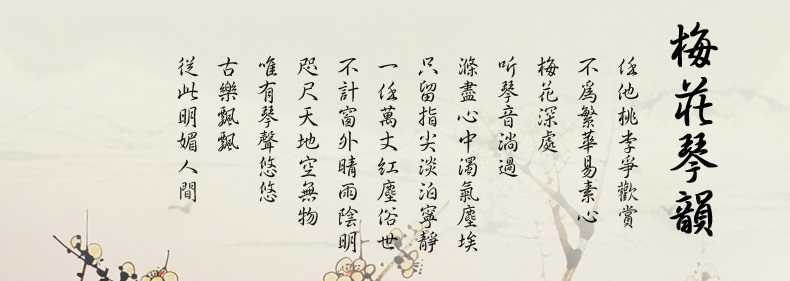 梅莊琴韻
任他桃李爭歡賞
不爲繁華易素心
梅花深處
听琴音淌過
滌盡心中濁氣塵埃
只留指尖淡泊寧靜
一任萬丈紅塵俗世
不計窗外晴雨陰明
咫尺天地空無物
唯有琴聲悠悠
古樂飄飄
從此明媚人間